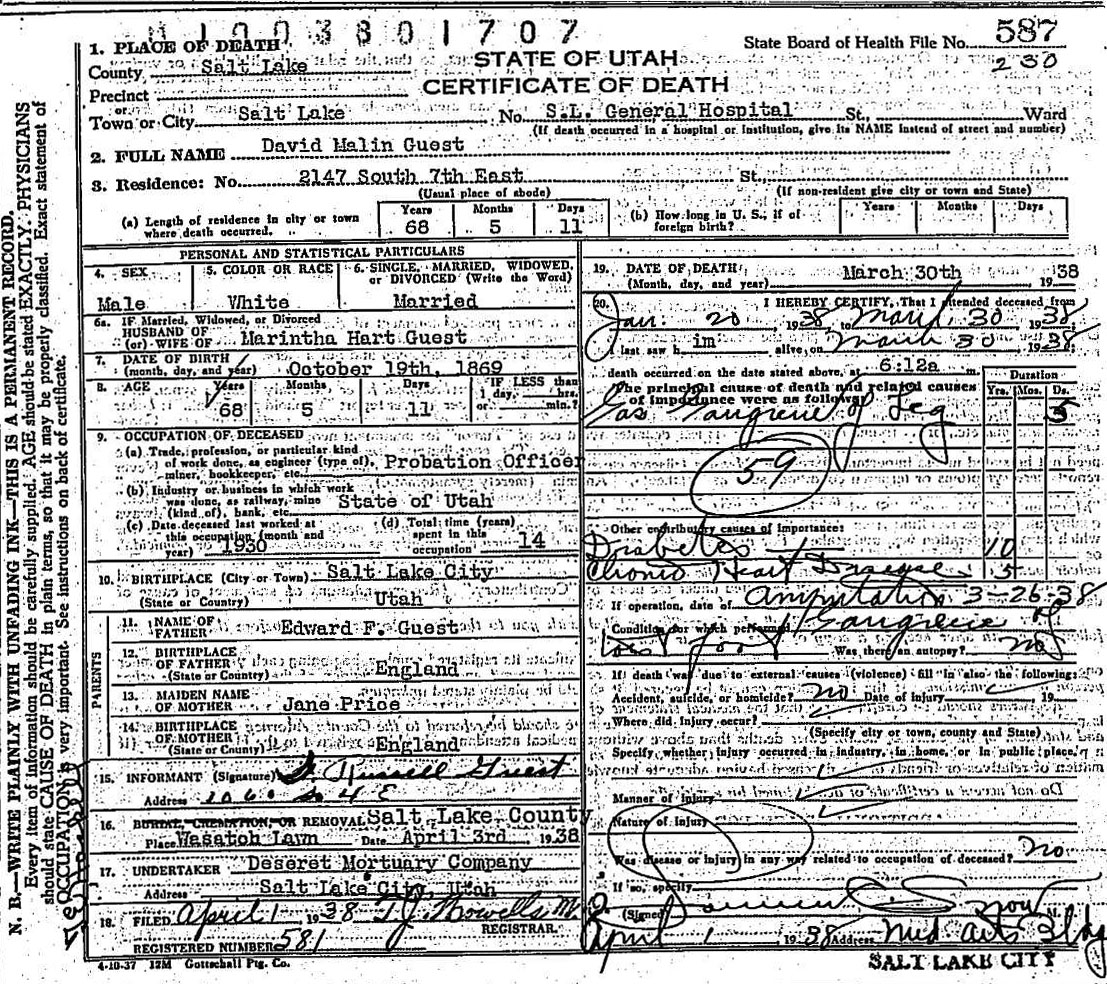 M 1 0 0 3 8 0 1 7 0 7
State Board of Health File No. 587
230
STATE OF UTAH
CERTIFICATE OF DEATH
1. PLACE OF DEATH
County Salt Lake
Precinct
or
Town or City Salt Lake No. S.L. General Hospital St., Ward
(If death occurred in a hospital or institution, give its NAME instead of street and number)
2. FULL NAME David Malin Guest
3. Residence: No. 2147 South 7th East St.
(Usual place of abode) (If non-resident give city or town and State)
(a) Length of residence in city or town where death occurred. Years 68 Months 5 Days 11
(b) How long in U. S., if of foreign birth? Years Months Days
N. B.—WRITE PLAINLY WITH UNFADING INK—THIS IS A PERMANENT RECORD.
Every item of information should be carefully supplied. AGE should be stated EXACTLY. PHYSICIANS
should state CAUSE OF DEATH in plain terms, so that it may be properly classified. Exact statement of
OCCUPATION is very important. See instructions on back of certificate.
PERSONAL AND STATISTICAL PARTICULARS
4. SEX Male
5. COLOR OR RACE White
6. SINGLE, MARRIED, WIDOWED, or DIVORCED (Write the Word) Married
6a. IF Married, Widowed, or Divorced
HUSBAND OF
(or) WIFE OF Marintha Hart Guest
7. DATE OF BIRTH
(month, day, and year) October 19th, 1869
8. AGE Years 68 Months 5 Days 11 IF LESS than 1 day, hrs. or min.?
9. OCCUPATION OF DECEASED
(a) Trade, profession, or particular kind
of work done, as engineer (type of),
miner, bookkeeper, etc. Probation Officer
(b) Industry or business in which work
was done, as railway, mine
(kind of), bank, etc. State of Utah
(c) Date deceased last worked at
this occupation (month and
year) 1930
(d) Total time (years)
spent in this
occupation 14
10. BIRTHPLACE (City or Town) Salt Lake City
(State or Country) Utah
PARENTS
11. NAME OF
FATHER Edward F. Guest
12. BIRTHPLACE
OF FATHER
(State or Country) England
13. MAIDEN NAME
OF MOTHER Jane Price
14. BIRTHPLACE
OF MOTHER
(State or County) England
15. INFORMANT (Signature) Russell Guest
Address 1060 So 4 E
16. BURIAL, CREMATION, OR REMOVAL Salt Lake County
Place Wasatch Lawn Date April 3rd 1938
17. UNDERTAKER Deseret Mortuary Company
Address Salt Lake City, Utah
18. FILED April 1 1938 T.J. Howells M
REGISTRAR.
REGISTERED NUMBER 581
4-10-37 12M Gottschall Ptg. Co.
19. DATE OF DEATH
(Month, day, and year) March 30th 1938
20. I HEREBY CERTIFY, That I attended deceased from
Jan. 20 1938 to March 30 1938
I last saw him alive on March 30 1938
death occurred on the date stated above, at 6:12a m.
The principal cause of death and related causes
of importance were as follows: Duration Yrs. Mos. Ds.
Gas Gangrene of Leg 5
59
Other contributory causes of importance:
Diabetes 10
Chronic Heart Disease 5
If operation, date of Amputation 3-26-38
Condition for which performed Gangrene of
foot Was there an autopsy? no
If death was due to external causes (violence) fill in also the following:
Accident, suicide, or homicide? no Date of injury 19
Where did injury occur?
(Specify city or town, county and State)
Specify whether injury occurred in industry, in home, or in public place.
Manner of injury
Nature of injury
Was disease or injury in any way related to occupation of deceased? no
If so, specify
(Signed) Snow M.
April 1 1938 Address Med Arts Bldg
SALT LAKE CITY